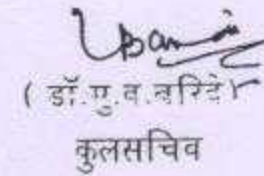 ( डॉ.पु.व.बरिदे)
कुलसचिव